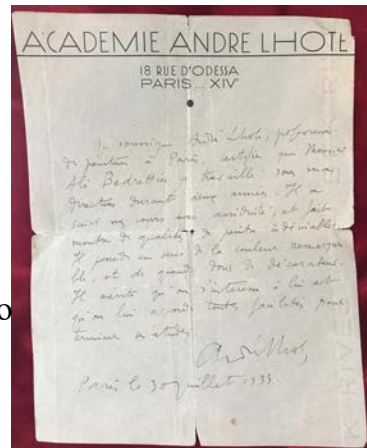 ACADEMIE ANDRE LHOTE
18 RUE D'ODESSA
PARIS... XIVᵉ
Je soussigné André Lhote, professeur
de peinture à Paris, certifie que Monsieur
Ali Bedrettin a travaillé sous ma
direction durant deux années. Il a
suivi mes cours avec assiduité, et fait
montre de qualités de peintre indéniables.
Il possède un sens de la couleur remarqua-
ble, et de grands dons de décorateur.
Il mérite qu'on s'intéresse à lui et
qu'on lui accorde toutes facilités pour
terminer ses études.
André Lhote
Paris le 30 juillet 1933